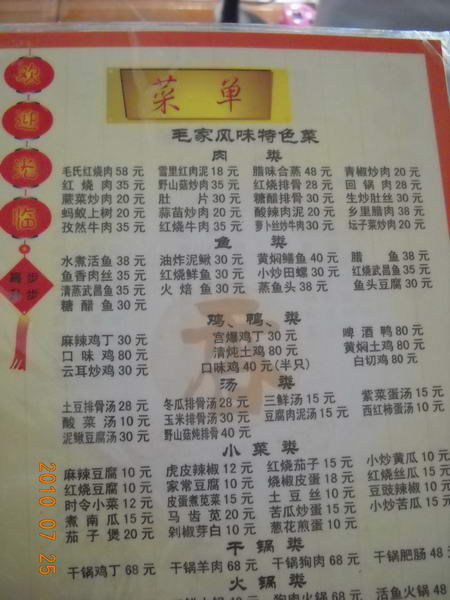 欢迎光临
步步高升
菜单
毛家风味特色菜
肉 类
毛氏红烧肉 58 元 雪里红肉泥 18 元 腊味合蒸 48 元 青椒炒肉 20 元
红烧肉 35 元 野山菇炒肉 35 元 红烧排骨 28 元 回锅肉 28 元
蕨菜炒肉 20 元 肚片 30 元 糖醋排骨 30 元 生炒肚丝 30 元
蚂蚁上树 20 元 蒜苗炒肉 20 元 酸辣肉泥 20 元 乡里腊肉 38 元
孜然牛肉 35 元 红烧牛肉 35 元 萝卜丝炒牛肉 30 元 坛子菜炒肉 20 元
鱼 类
水煮活鱼 38 元 油炸泥鳅 30 元 黄焖鳝鱼 40 元 腊鱼 38 元
鱼香肉丝 35 元 红烧鲜鱼 30 元 小炒田螺 30 元 红烧武昌鱼 35 元
清蒸武昌鱼 35 元 火焙鱼 30 元 蒸鱼头 38 元 鱼头豆腐 30 元
糖醋鱼 30 元
鸡、鸭、类
麻辣鸡丁 30 元 宫爆鸡丁 30 元 啤酒鸭 80 元
口味鸡 80 元 清炖土鸡 80 元 黄焖土鸡 80 元
云耳炒鸡 30 元 口味鸡 40 元(半只) 白切鸡 80 元
汤 类
土豆排骨汤 28 元 冬瓜排骨汤 28 元 三鲜汤 15 元 紫菜蛋汤 15 元
酸菜汤 10 元 玉米排骨汤 30 元 豆腐肉泥汤 15 元 西红柿蛋汤 10 元
泥鳅豆腐汤 30 元 野山菇炖排骨 40 元
小菜类
麻辣豆腐 10 元 虎皮辣椒 12 元 红烧茄子 15 元 小炒黄瓜 10 元
红烧豆腐 10 元 家常豆腐 10 元 烧椒皮蛋 18 元 红烧丝瓜 15 元
时令小菜 12 元 皮蛋煮苋菜 15 元 土豆丝 10 元 豆豉辣椒 10 元
煮南瓜 15 元 马齿苋 20 元 苦瓜炒蛋 15 元 小炒苦瓜 15 元
茄子煲 20 元 剁椒芽白 10 元 葱花煎蛋 10 元
干锅类
干锅鸡丁 68 元 干锅羊肉 68 元 干锅狗肉 68 元 干锅肥肠 48 元
火锅类
狗肉火锅 68 元 活鱼火锅
2010.07.25